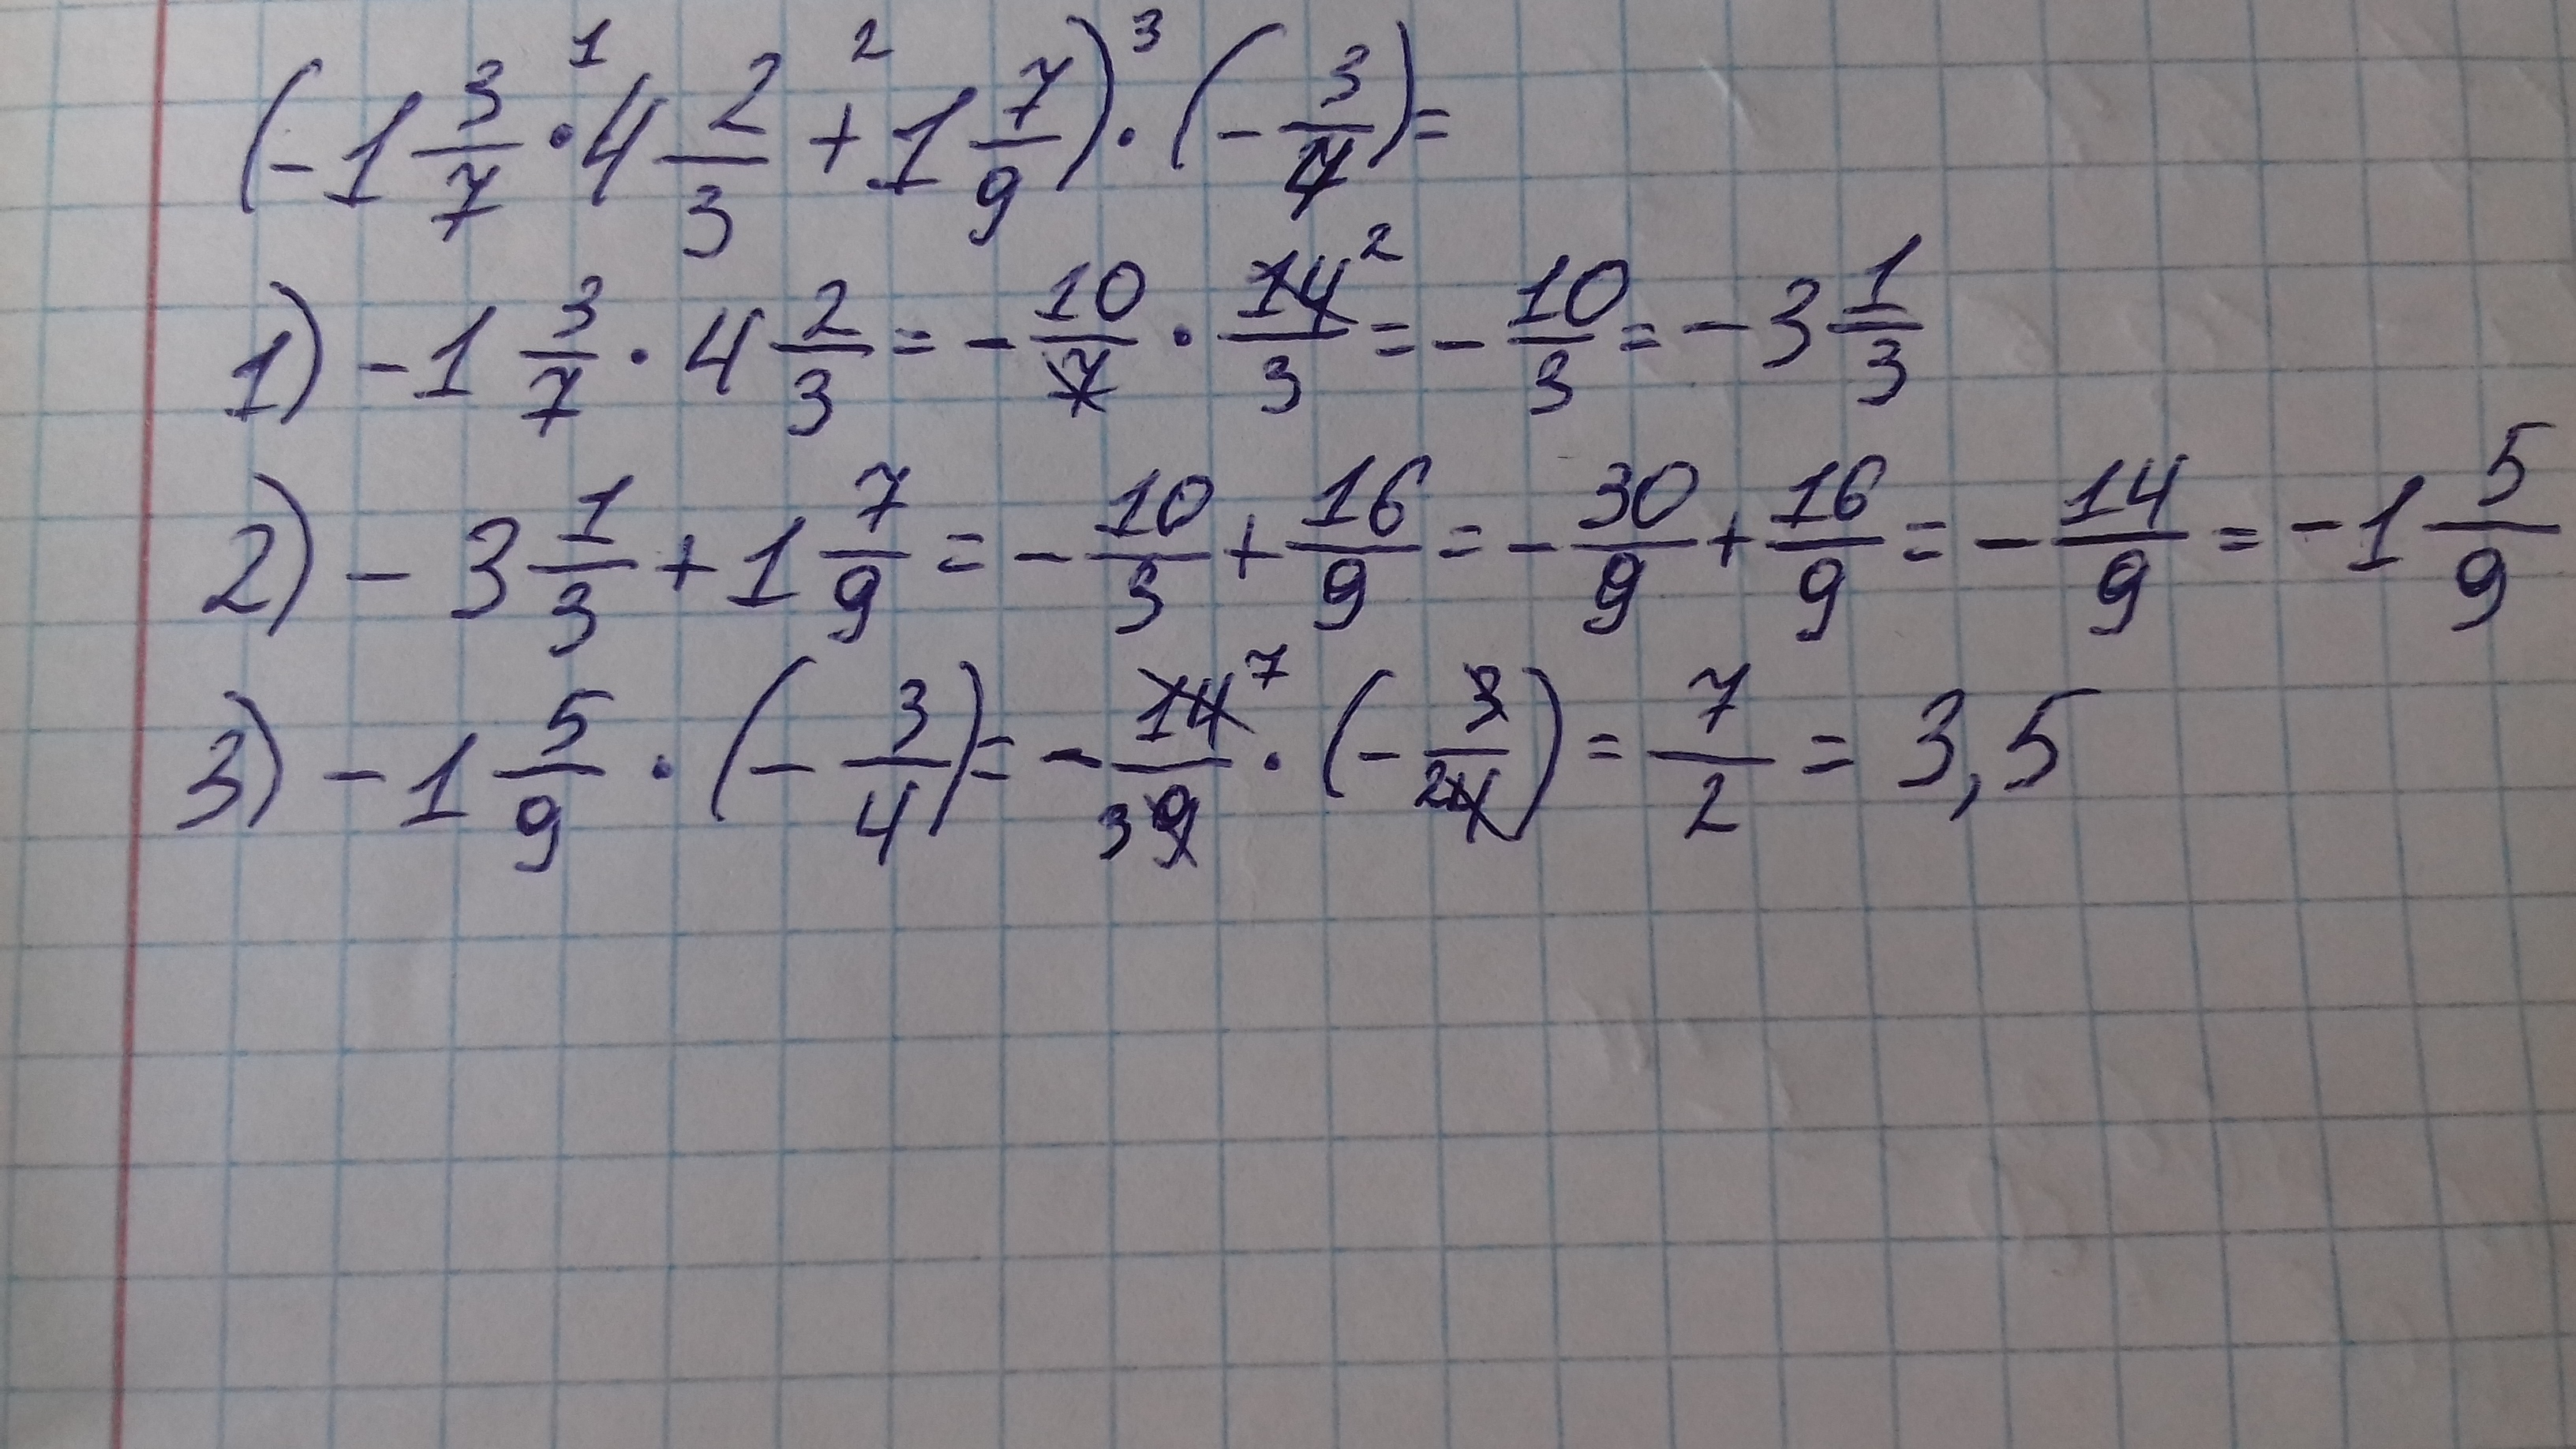 (-1 3/7 ·¹ 4 2/3 +² 1 7/9) ·³ (- 3/4) =
1) -1 3/7 · 4 2/3 = - 10/7 · 14²/3 = - 10/3 = -3 1/3
2) -3 1/3 + 1 7/9 = - 10/3 + 16/9 = - 30/9 + 16/9 = - 14/9 = -1 5/9
3) -1 5/9 · (- 3/4) = - 14⁷/₃9 · (- 3/₂4) = 7/2 = 3,5